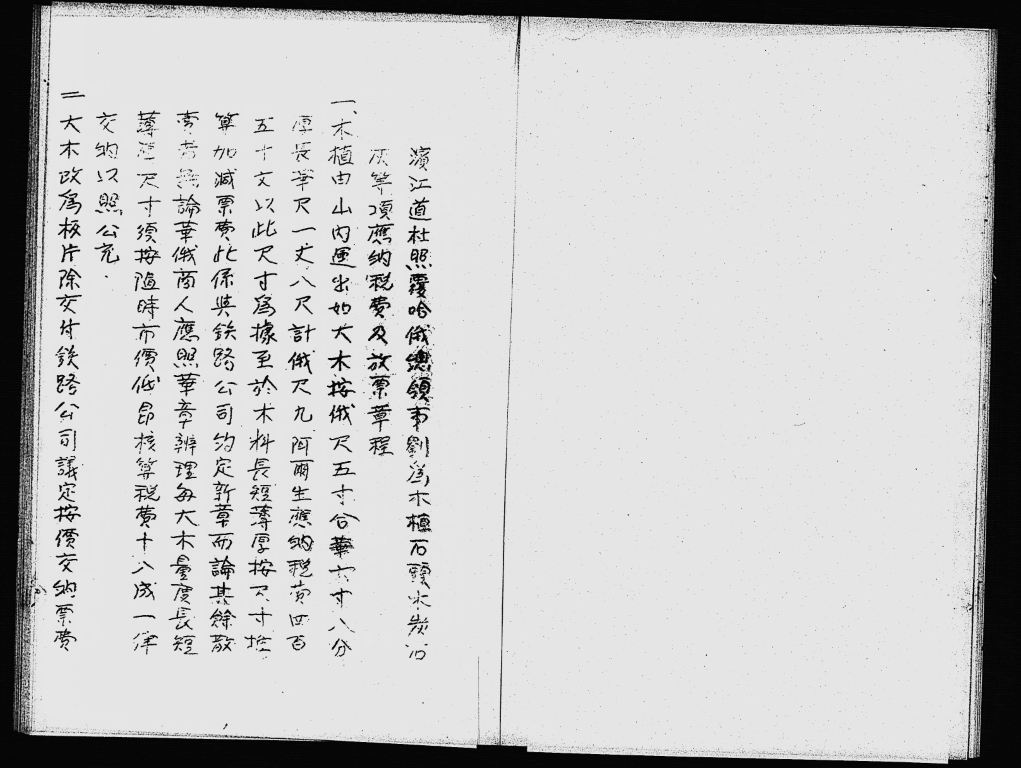 濱江道杜照覆哈俄總領事劉為木植石頭木炭石
灰等項應納稅費及放票章程
一、木植由山內運出如大木按俄尺五寸合華六寸八分
厚長華尺一丈八尺計俄尺九阿爾生應納稅費四百
五十文以此尺寸為據至於木料長短薄厚按尺寸
算加減票費此係與鉄路公司約定新章而論其餘散
賣者無論華俄商人應照華章辦理每大木量度長短
薄厚尺寸須按隨時市價低昂核算稅費十八成一律
交納以照公允.
二 大木改為板片除交付鉄路公司議定按價交納票費